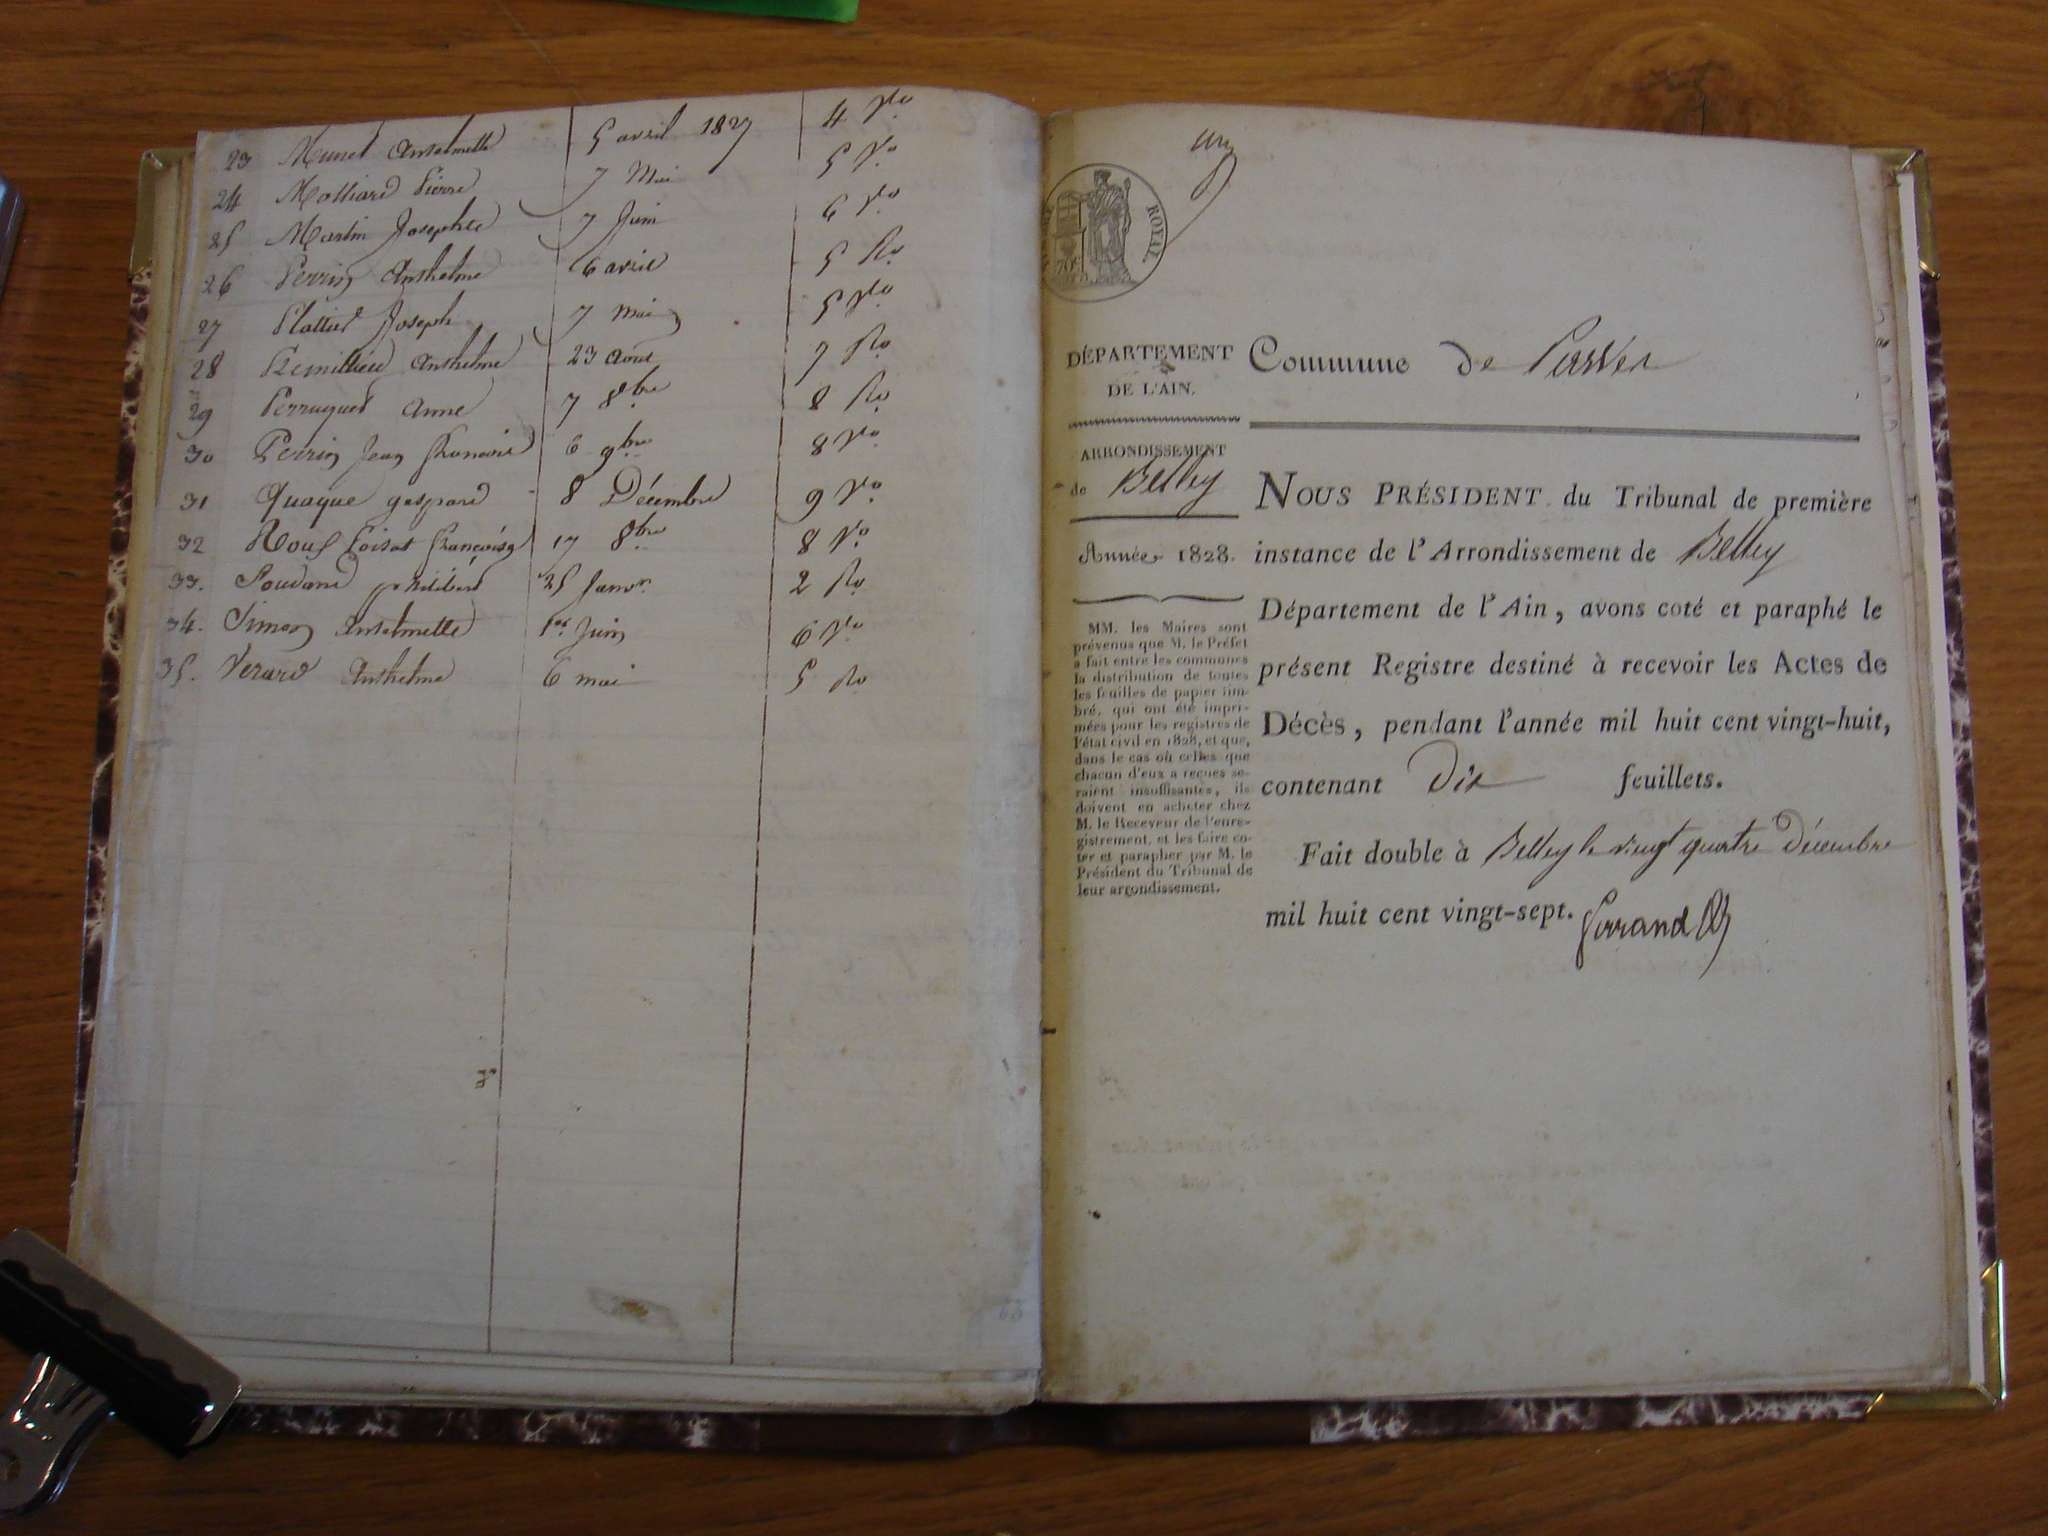 23 Munet Anselmette 5 avril 1827 4 Vo
24 Molliard Pierre 7 Mai 5 Vo
25 Martin Josephte 7 Juin 6 Vo
26 Perrin Anthelme 6 avril 5 Ro
27 Plattier Joseph 7 mai 5 Vo
28 Anthelme 23 Aout 7 Ro
29 Perruquet Anne 7 8bre 8 Ro
30 Perrin Jean François 6 9bre 8 Vo
31 Quaque gaspard 8 Décembre 9 Vo
32 Françoise 17 8bre 8 Vo
33. philibert 25 Janvr 2 Ro
34. Simon Anselmette 1er Juin 6 Vo
35. Verard Anthelme 6 mai 5 Ro
un
ROYAL
70c
DÉPARTEMENT
DE L'AIN.
ARRONDISSEMENT
de Belley
Année 1828.
MM. les Maires sont
prévenus que M. le Préfet
a fait entre les communes
la distribution de toutes
les feuilles de papier tim-
bré, qui ont été impri-
mées pour les registres de
l'état civil en 1828, et que,
dans le cas où celles que
chacun d'eux a reçues se-
raient insuffisantes, ils
doivent en acheter chez
M. le Receveur de l'enre-
gistrement, et les faire co-
ter et parapher par M. le
Président du Tribunal de
leur arrondissement.
Commune de Parves
NOUS PRÉSIDENT du Tribunal de première
instance de l'Arrondissement de Belley
Département de l'Ain, avons coté et paraphé le
présent Registre destiné à recevoir les Actes de
Décès, pendant l'année mil huit cent vingt-huit,
contenant Dix feuillets.
Fait double à Belley le vingt quatre Décembre
mil huit cent vingt-sept.